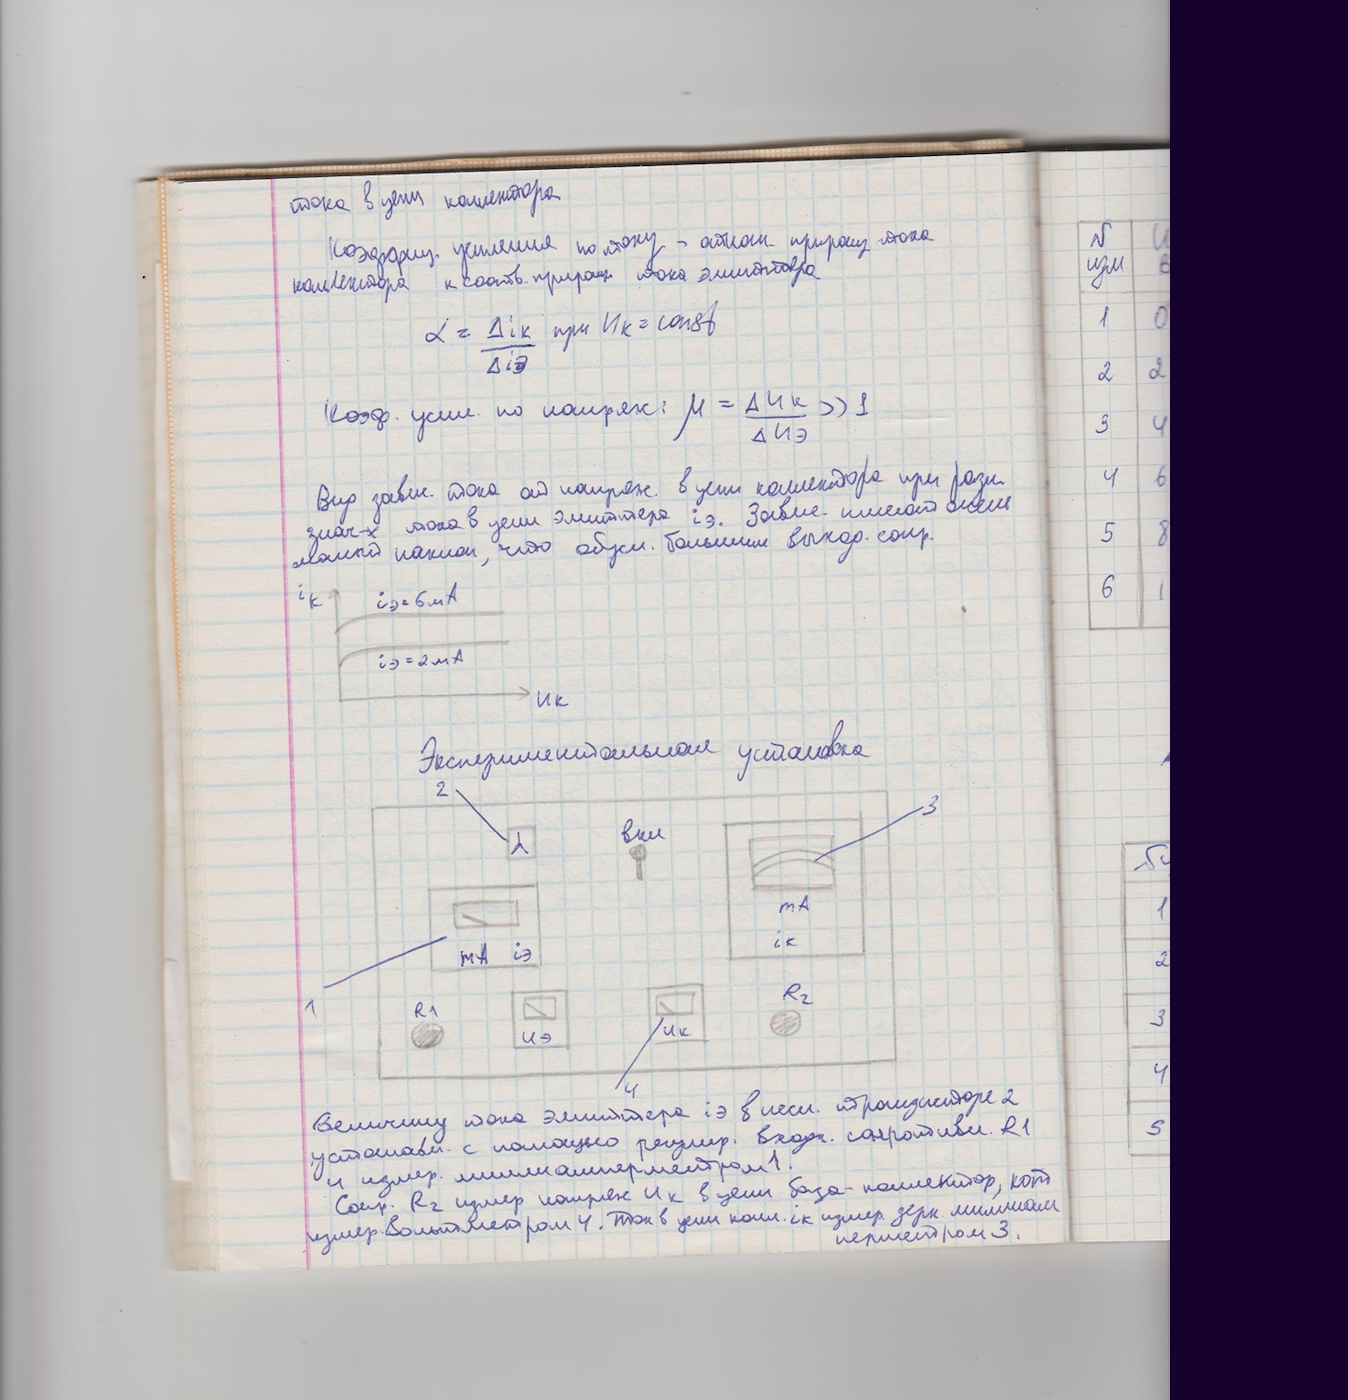 тока в цепи коллектора
Коэффиц. усиления по току - отнош. приращ. тока
коллектора к соотв. приращ. тока эмиттера
α = Δiк / Δiэ при Uк = const
Коэф. усил. по напряж: μ = ΔUк / ΔUэ >> 1
Вид завис. тока от напряж. в цепи коллектора при разн.
знач-х тока в цепи эмиттера iэ. Завис. имеют очень
малый наклон, что обусл. большим выход. сопр.
iк
iэ=6мА
iэ=2мА
Uк
Экспериментальная установка
2
3
вкл
mA iэ
mA
iк
1
R1
Uэ
Uк
R2
4
Величину тока эмиттера iэ в иссл. транзисторе 2
устанавл. с помощью регулир. входн. сопротивл. R1
и измер. миллиамперметром 1.
Сопр. R2 измер напряж Uк в цепи база-коллектор, кот
измер. вольтметром 4. Ток в цепи колл. iк измер. зерк. миллиам
перметром 3.
N
изм
1 0
2 2
3 4
4 6
5 8
6 1
1
2
3
4
5